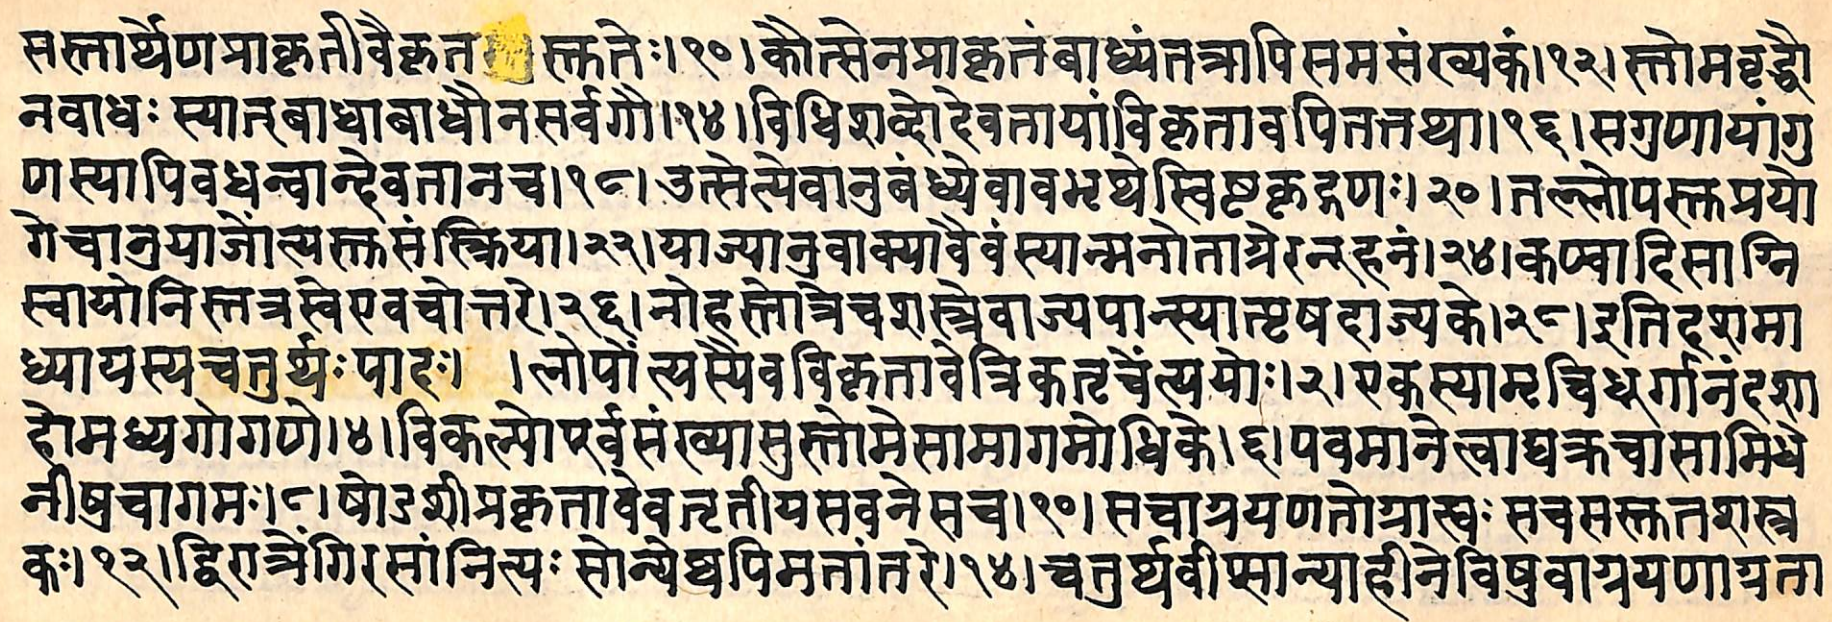 सस्तार्थेणप्राकृतीवैकृत स्तुतेः।१०।कौत्सेनप्राकृतंबाध्यंतत्रापिसमसंख्यकं।१२।स्तोमवृद्धौ
नबाधः स्यात्बाधाबाधौनसर्वगौ।१४।विधिशब्दोदेवतायांविकृतावपितत्तथा।१६।सगुणायांगु
णस्यापिवधन्वान्देवतानच।१८।उत्सेत्येवानुबंध्येवावभृथेस्विष्टकृद्गणः।२०।तल्लोपस्तुप्रयो
गेचानुयाजोंत्यस्तुसंस्क्रिया।२२।याज्यानुवाक्यावैवंस्यान्मनोताग्नेरनूहनं।२४।कण्वादिसाग्नि
स्वायोनिस्तत्रस्वेएवचोत्तरे।२६।नोहस्तोत्रेचशस्त्रेवाज्यपान्स्यात्पृषदाज्यके।२८।इतिदशमा
ध्यायस्यचतुर्थः पादः। ।लोपोंत्यस्यैवविकृतावेत्रिकतृचेंत्ययोः।२।एकस्यामृचिधूर्गानंदशा
होमध्यगोगणे।४।विकल्पोपूर्वसंख्यासुस्तोमेसामागमोधिके।६।पवमानेत्वाद्यऋचासामिधे
नीषुचागमः।८।षोडशीप्रकृतावेवतृतीयसवनेसच।१०।सचाग्रयणतोग्राह्यः सचसस्तुतशस्त्र
कः।१२।द्विरात्रेंगिरसांनित्यः सोन्येष्वपिमतांतरे।१४।चतुर्थवीप्सान्याहीनेविषुवाग्रयणाग्रता